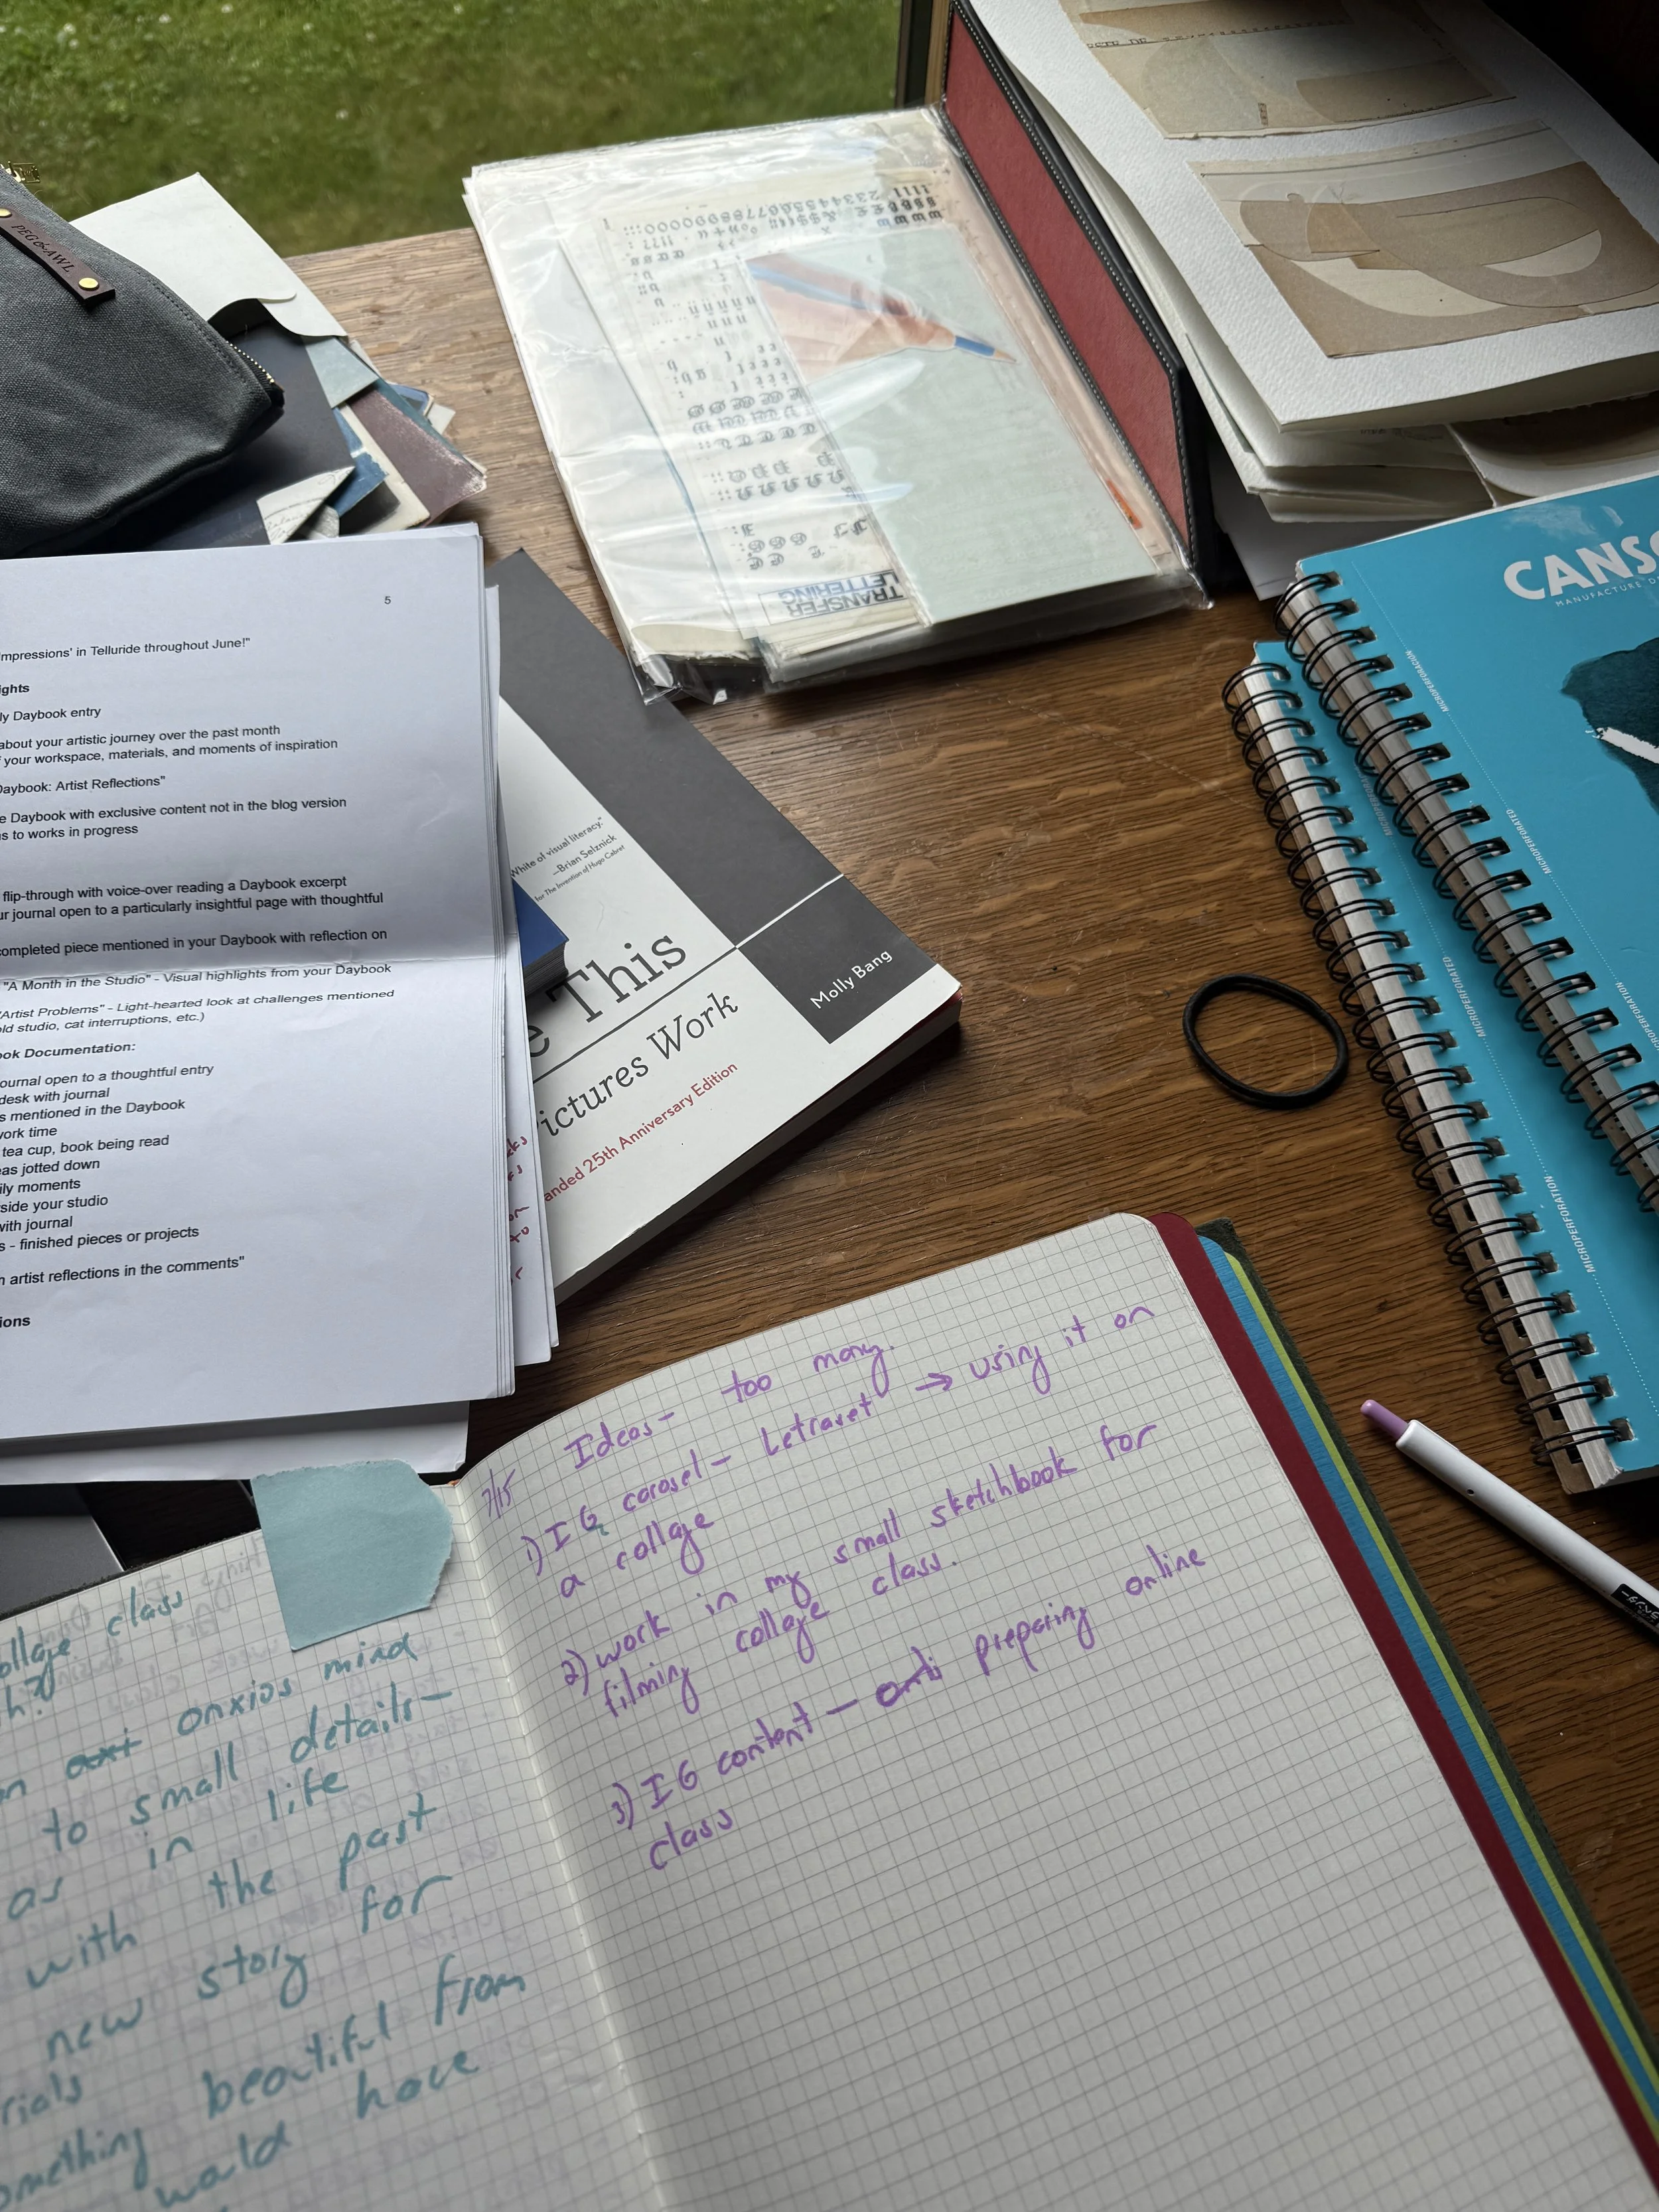 PEG & AWL
TRANSFER
LETTERING
CANSO
MANUFACTURE D
MICROPERFORACIÓN
MICROPERFORATED
MICROPERFORATION
MICROPERFORATED
MICROPERFORATION
5
mpressions' in Telluride throughout June!"
ights
ly Daybook entry
about your artistic journey over the past month
your workspace, materials, and moments of inspiration
Daybook: Artist Reflections"
e Daybook with exclusive content not in the blog version
s to works in progress
flip-through with voice-over reading a Daybook excerpt
ur journal open to a particularly insightful page with thoughtful
completed piece mentioned in your Daybook with reflection on
"A Month in the Studio" - Visual highlights from your Daybook
"Artist Problems" - Light-hearted look at challenges mentioned
old studio, cat interruptions, etc.)
ook Documentation:
ournal open to a thoughtful entry
desk with journal
s mentioned in the Daybook
work time
tea cup, book being read
eas jotted down
ily moments
side your studio
with journal
s - finished pieces or projects
h artist reflections in the comments"
ions
White of visual literacy."
—Brian Selznick
for The Invention of Hugo Cabret
e This
ictures Work
Molly Bang
anded 25th Anniversary Edition
7/15 Ideas- too many.
1) IG carosel - Letraset → using it on
a collage
2) work in my small sketchbook for
filming collage class.
3) IG content - and preparing online
class
ollage class
h?
an anxios mind
to small details-
as in life
with the past
new story for
rials beautiful from
omething would have